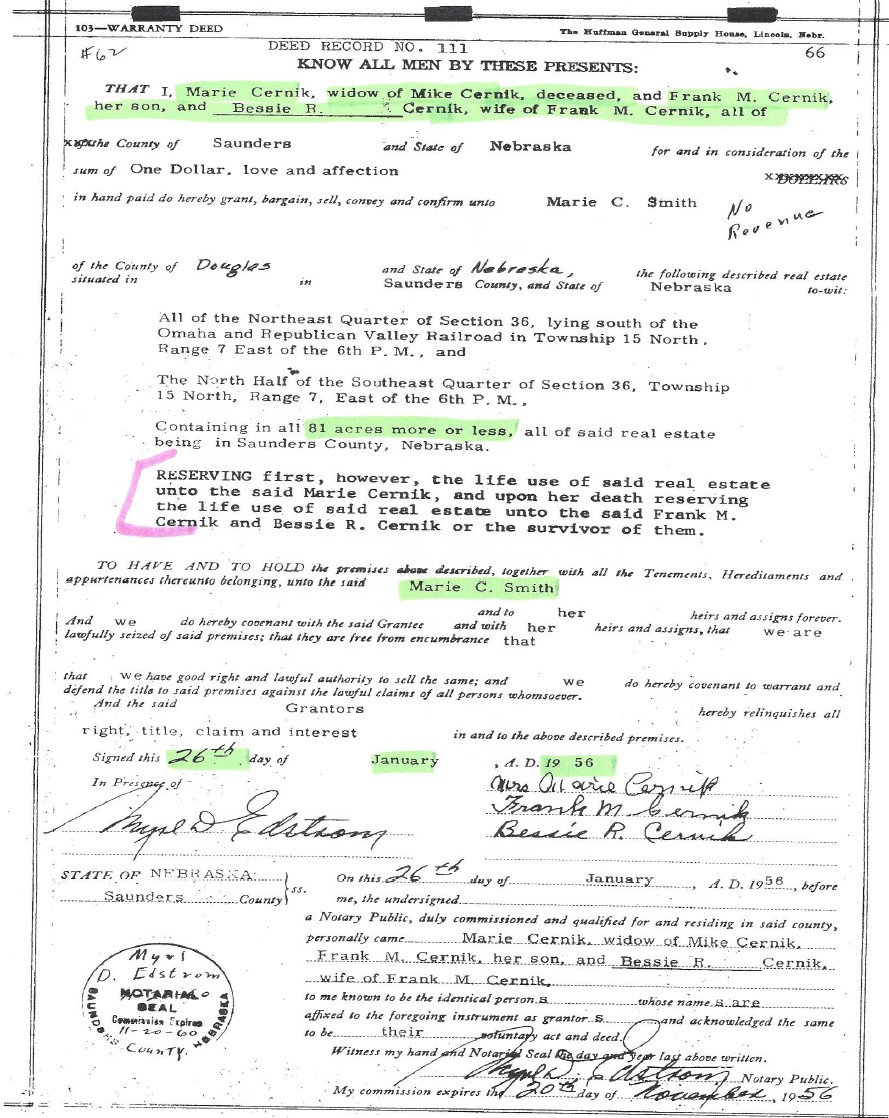 103—WARRANTY DEED The Huffman General Supply House, Lincoln, Nebr.
#62 DEED RECORD NO. 111 66
KNOW ALL MEN BY THESE PRESENTS:
THAT I, Marie Cernik, widow of Mike Cernik, deceased, and Frank M. Cernik,
her son, and Bessie R. Cernik, wife of Frank M. Cernik, all of
the County of Saunders and State of Nebraska for and in consideration of the
sum of One Dollar, love and affection DOLLARS
in hand paid do hereby grant, bargain, sell, convey and confirm unto Marie C. Smith
No
Revenue
of the County of Douglas and State of Nebraska, the following described real estate
situated in in Saunders County, and State of Nebraska to-wit:
All of the Northeast Quarter of Section 36, lying south of the
Omaha and Republican Valley Railroad in Township 15 North,
Range 7 East of the 6th P. M., and
The North Half of the Southeast Quarter of Section 36, Township
15 North, Range 7, East of the 6th P. M.,
Containing in all 81 acres more or less, all of said real estate
being in Saunders County, Nebraska.
RESERVING first, however, the life use of said real estate
unto the said Marie Cernik, and upon her death reserving
the life use of said real estate unto the said Frank M.
Cernik and Bessie R. Cernik or the survivor of them.
TO HAVE AND TO HOLD the premises above described, together with all the Tenements, Hereditaments and
appurtenances thereunto belonging, unto the said Marie C. Smith
and to her heirs and assigns forever.
And we do hereby covenant with the said Grantee and with her heirs and assigns, that we are
lawfully seized of said premises; that they are free from encumbrance that
that we have good right and lawful authority to sell the same; and we do hereby covenant to warrant and
defend the title to said premises against the lawful claims of all persons whomsoever.
And the said Grantors hereby relinquishes all
right, title, claim and interest in and to the above described premises.
Signed this 26th day of January , A. D. 19 56
In Presence of Mrs Marie Cernik
Frank M Cernik
Myrl D. Edstrom Bessie R. Cernik
STATE OF NEBRASKA: On this 26th day of January , A. D. 1956 , before
Saunders County ss. me, the undersigned
a Notary Public, duly commissioned and qualified for and residing in said county,
personally came Marie Cernik, widow of Mike Cernik,
Frank M. Cernik, her son, and Bessie R. Cernik,
wife of Frank M. Cernik,
to me known to be the identical person s whose name s are
affixed to the foregoing instrument as grantor s and acknowledged the same
to be their voluntary act and deed.
Witness my hand and Notarial Seal the day and year last above written.
Myrl D. Edstrom Notary Public.
My commission expires the 20th day of November , 1956
Myrl
D. Edstrom
NOTARIAL
SEAL
Commission Expires
11-20-60
SAUNDERS COUNTY, NEBRASKA